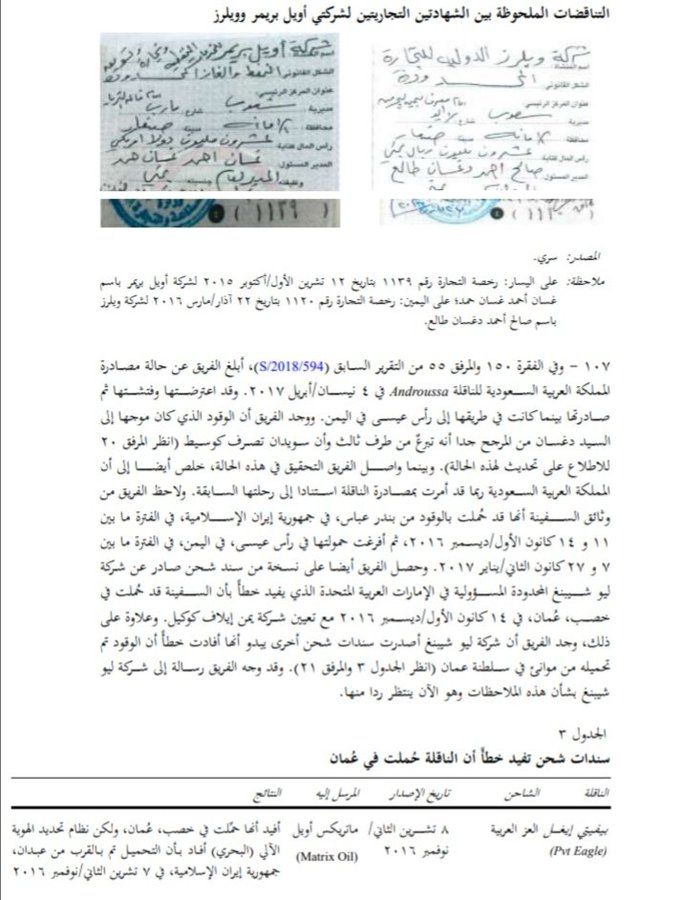 التناقضات الملحوظة بين الشهادتين التجاريتين لشركتي أويل بريمر وويلرز
شركة ويلرز الدولية للتجارة
الشكل القانوني المحدودة
عنوان المركز الرئيسي
مديرية شعوب
محافظة الأمانة مدينة صنعاء
رأس المال كتابة عشرون مليون ريال يمني
المدير المسئول صالح احمد دغسان طالع
(١١٢٠)
شركة أويل بريمر
الشكل القانوني النفط والغاز المحدودة
عنوان المركز الرئيسي
مديرية شعوب شارع مارب
محافظة الأمانة مدينة صنعاء
رأس المال كتابة عشرون مليون دولار امريكي
المدير المسئول غسان احمد غسان حمد
المدير العام يمني
(١١٣٩)
المصدر: سري.
ملاحظة: على اليسار: رخصة التجارة رقم ١١٣٩ بتاريخ ١٢ تشرين الأول/أكتوبر ٢٠١٥ لشركة أويل بريمر باسم
غسان أحمد غسان حمد؛ على اليمين: رخصة التجارة رقم ١١٢٠ بتاريخ ٢٢ آذار/مارس ٢٠١٦ لشركة ويلرز
باسم صالح أحمد دغسان طالع.
١٠٧ - وفي الفقرة ١٥٠ والمرفق ٥٥ من التقرير السابق (S/2018/594)، أبلغ الفريق عن حالة مصادرة
المملكة العربية السعودية للناقلة Androussa في ٤ نيسان/أبريل ٢٠١٧. وقد اعترضتها وفتشتها ثم
صادرتها بينما كانت في طريقها إلى رأس عيسى في اليمن. ووجد الفريق أن الوقود الذي كان موجها إلى
السيد دغسان من المرجح جدا أنه تبرعٌ من طرف ثالث وأن سويدان تصرف كوسيط (انظر المرفق ٢٠
للاطلاع على تحديث لهذه الحالة). وبينما واصل الفريق التحقيق في هذه الحالة، خلص أيضا إلى أن
المملكة العربية السعودية ربما قد أمرت بمصادرة الناقلة استنادا إلى رحلتها السابقة. ولاحظ الفريق من
وثائق السفينة أنها قد حُملت بالوقود من بندر عباس، في جمهورية إيران الإسلامية، في الفترة ما بين
١١ و ١٤ كانون الأول/ديسمبر ٢٠١٦، ثم أفرغت حمولتها في رأس عيسى، في اليمن، في الفترة ما بين
٧ و ٢٧ كانون الثاني/يناير ٢٠١٧. وحصل الفريق أيضا على نسخة من سند شحن صادر عن شركة
ليو شيبينغ المحدودة المسؤولية في الإمارات العربية المتحدة الذي يفيد خطأً بأن السفينة قد حُملت في
خصب، عُمان، في ١٤ كانون الأول/ديسمبر ٢٠١٦ مع تعيين شركة يمن إيلاف كوكيل. وعلاوة على
ذلك، وجد الفريق أن شركة ليو شيبينغ أصدرت سندات شحن أخرى يبدو أنها أفادت خطأً أن الوقود تم
تحميله من موانئ في سلطنة عمان (انظر الجدول ٣ والمرفق ٢١). وقد وجه الفريق رسالة إلى شركة ليو
شيبينغ بشأن هذه الملاحظات وهو الآن ينتظر ردا منها.
الجدول ٣
سندات شحن تفيد خطأً أن الناقلة حُملت في عُمان
الناقلة الشاحن تاريخ الإصدار المرسل إليه النتائج
بيفيتي إيغل العز العربية ٨ تشرين الثاني/ ماتريكس أويل أفيد أنها حمِّلت في خصب، عُمان، ولكن نظام تحديد الهوية
(Pvt Eagle) نوفمبر ٢٠١٦ (Matrix Oil) الآلي (البحري) أفاد بأن التحميل تم بالقرب من عبدان،
جمهورية إيران الإسلامية، في ٧ تشرين الثاني/نوفمبر ٢٠١٦